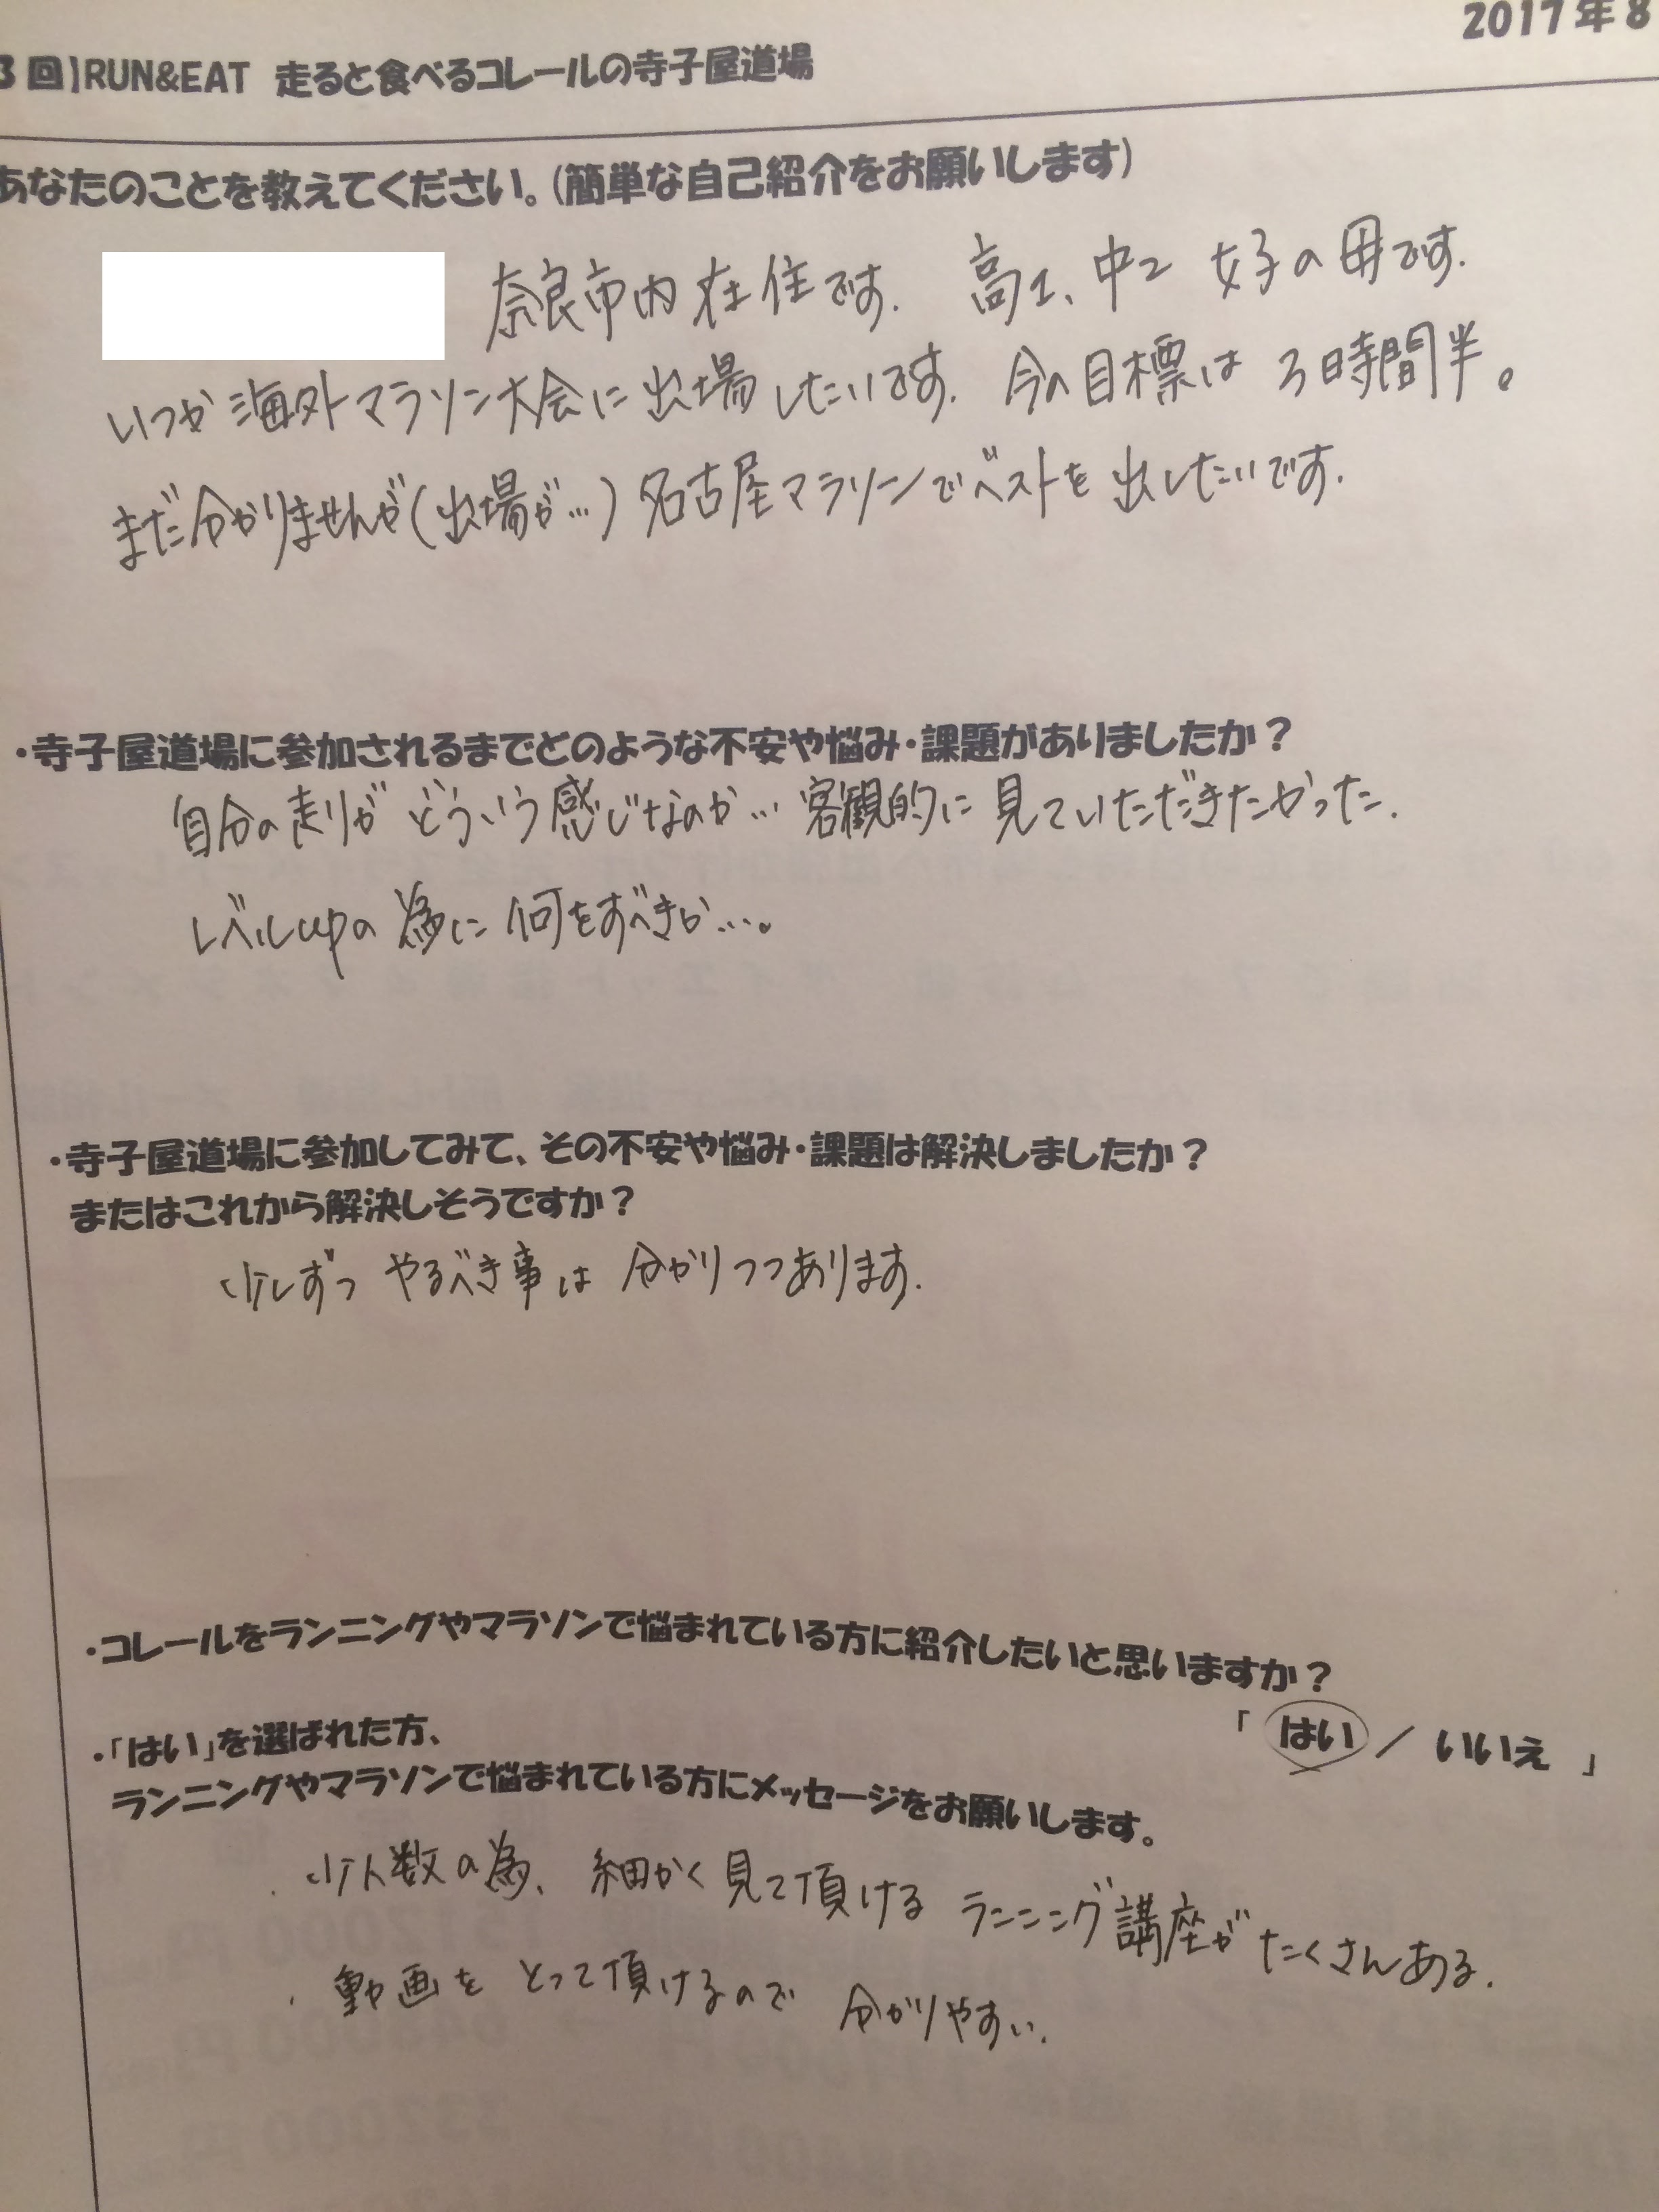 2017年8
3回】RUN&EAT 走ると食べるコレールの寺子屋道場
あなたのことを教えてください。(簡単な自己紹介をお願いします)
奈良市内在住です. 高1、中2 女子の母です.
いつか海外マラソン大会に出場したいです. 今の目標は3時間半。
まだ分かりませんが(出場が…)名古屋マラソンでベストを出したいです.
・寺子屋道場に参加されるまでどのような不安や悩み・課題がありましたか?
自分の走りがどういう感じなのか… 客観的に見ていただきたかった.
レベルupの為に何をすべきか…。
・寺子屋道場に参加してみて、その不安や悩み・課題は解決しましたか?
またはこれから解決しそうですか?
少しずつ やるべき事は 分かりつつあります.
・コレールをランニングやマラソンで悩まれている方に紹介したいと思いますか?
「 はい / いいえ 」
・「はい」を選ばれた方、
ランニングやマラソンで悩まれている方にメッセージをお願いします。
・少人数の為、細かく見て頂ける ランニング講座がたくさんある.
・動画をとって頂けるので 分かりやすい.